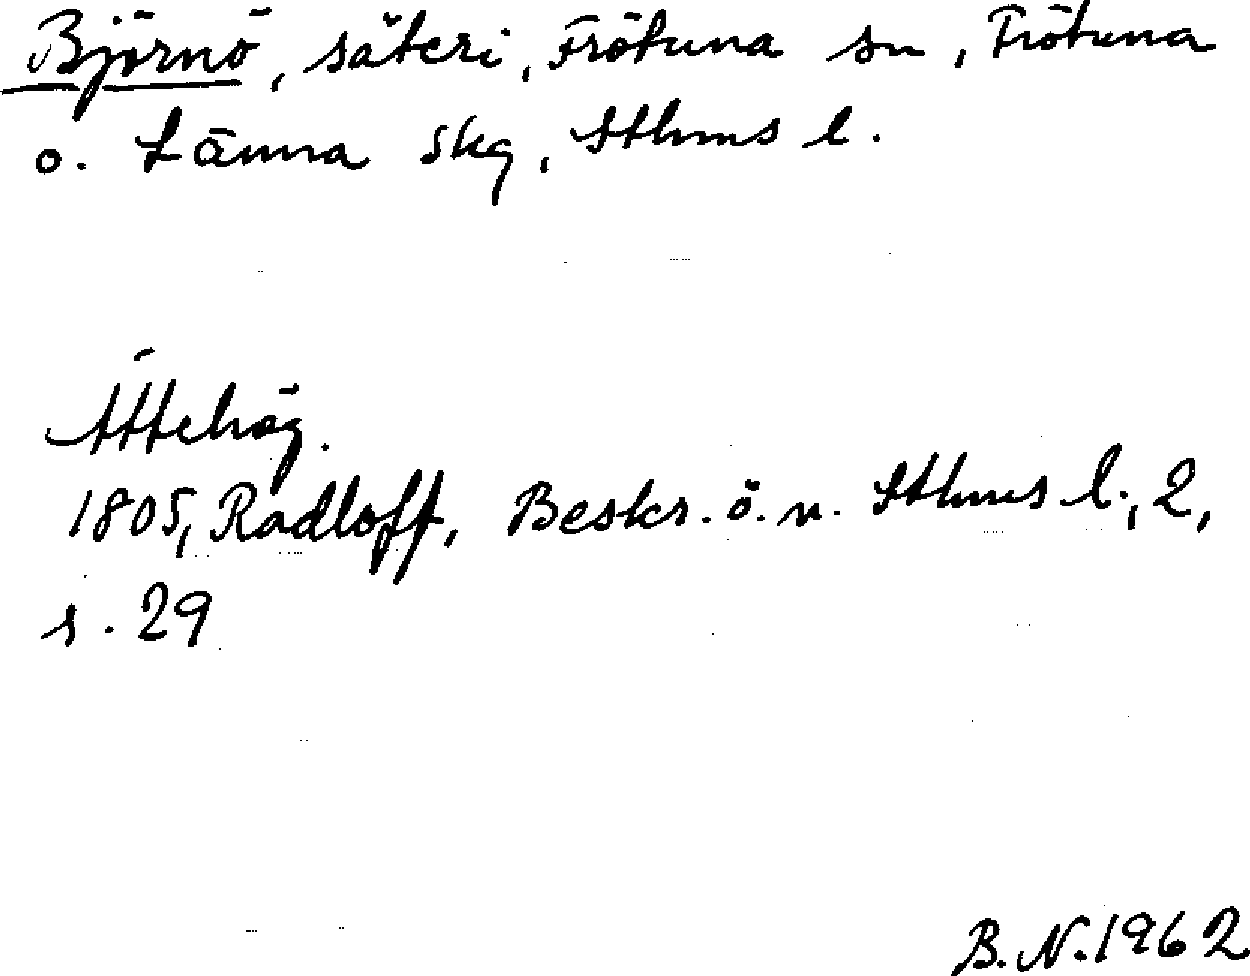 Björnö, säteri, Frötuna sn, Frötuna
o. Länna skg, Sthms l.
Ättehög.
1805, Radloff, Beskr. ö. n. Sthms l., 2,
s. 29
B. N. 1962